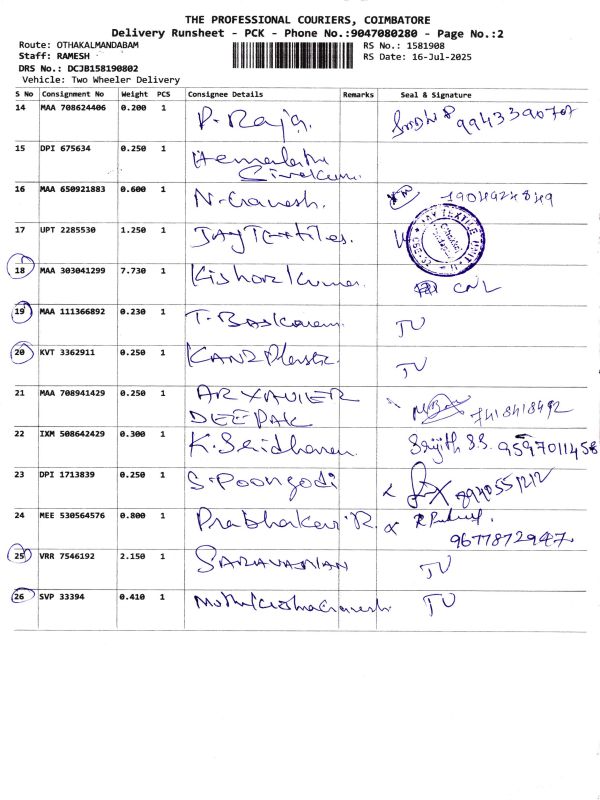 THE PROFESSIONAL COURIERS, COIMBATORE
Delivery Runsheet - PCK - Phone No.:9047080280 - Page No.:2
Route: OTHAKALMANDABAM
RS No.: 1581908
Staff: RAMESH
RS Date: 16-Jul-2025
DRS No.: DCJB158190802
Vehicle: Two Wheeler Delivery
S No Consignment No Weight PCS Consignee Details Remarks Seal & Signature
14 MAA 708624406 0.200 1 P. Raja. 9943390707
15 DPI 675634 0.250 1 Hemalatha
16 MAA 650921883 0.600 1 N. Ganesh. 7904924849
17 UPT 2285530 1.250 1 JAY Textiles.
18 MAA 303041299 7.730 1 Kishore Kumar CNL
19 MAA 111366892 0.230 1 T. Baskaran TU
20 KVT 3362911 0.250 1 TU
21 MAA 708941429 0.250 1 AR XAVIER 7418418492
DEEPAK
22 IXM 508642429 0.300 1 K. Sridharan Srijith S.S. 9597011458
23 DPI 1713839 0.250 1 S. Poongodi 8940551212
24 MEE 530564576 0.800 1 Prabhakar R.
9677872947
25 VRR 7546192 2.150 1 SARAVANAN TU
26 SVP 33394 0.410 1 TU